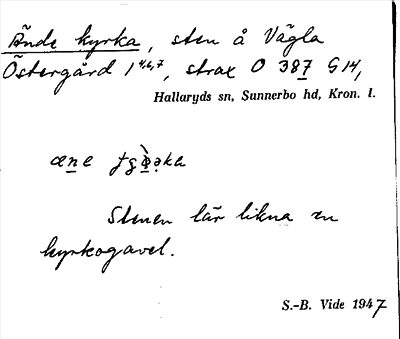 Ände kyrka, sten å Vägla
Östergård 1⁴,⁶,⁷, strax O 387 G 14,
Hallaryds sn, Sunnerbo hd, Kron. l.
æne
Stenen lär likna en
kyrkogavel.
S.-B. Vide 1947